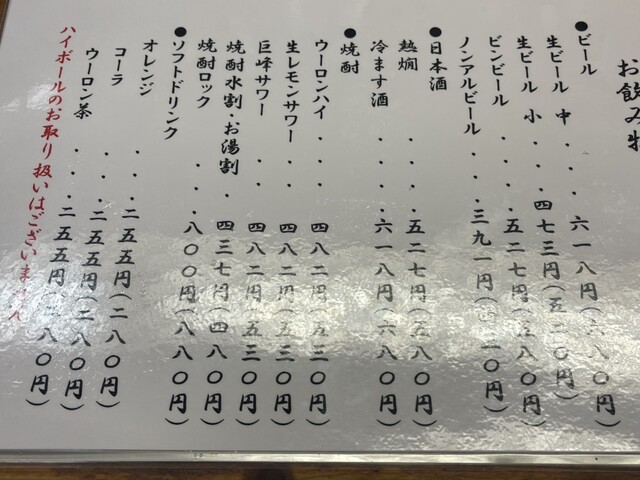 お飲み物
●ビール
生ビール 中・・・六一八円(六八〇円)
生ビール 小・・・・四七三円(五二〇円)
ビンビール・・・五二七円(五八〇円)
ノンアルビール・・・三九一円(四三〇円)
●日本酒
熱燗・・・・五二七円(五八〇円)
冷ます酒・・・・六一八円(六八〇円)
●焼酎
ウーロンハイ・・・四八二円(五三〇円)
生レモンサワー・・・四八二円(五三〇円)
巨峰サワー・・・四八二円(五三〇円)
焼酎水割・お湯割・・四三七円(四八〇円)
焼酎ロック・・・八〇〇円(八八〇円)
●ソフトドリンク
オレンジ・・・二五五円(二八〇円)
コーラ・・・二五五円(二八〇円)
ウーロン茶・・・二五五円(二八〇円)
ハイボールのお取り扱いはございません